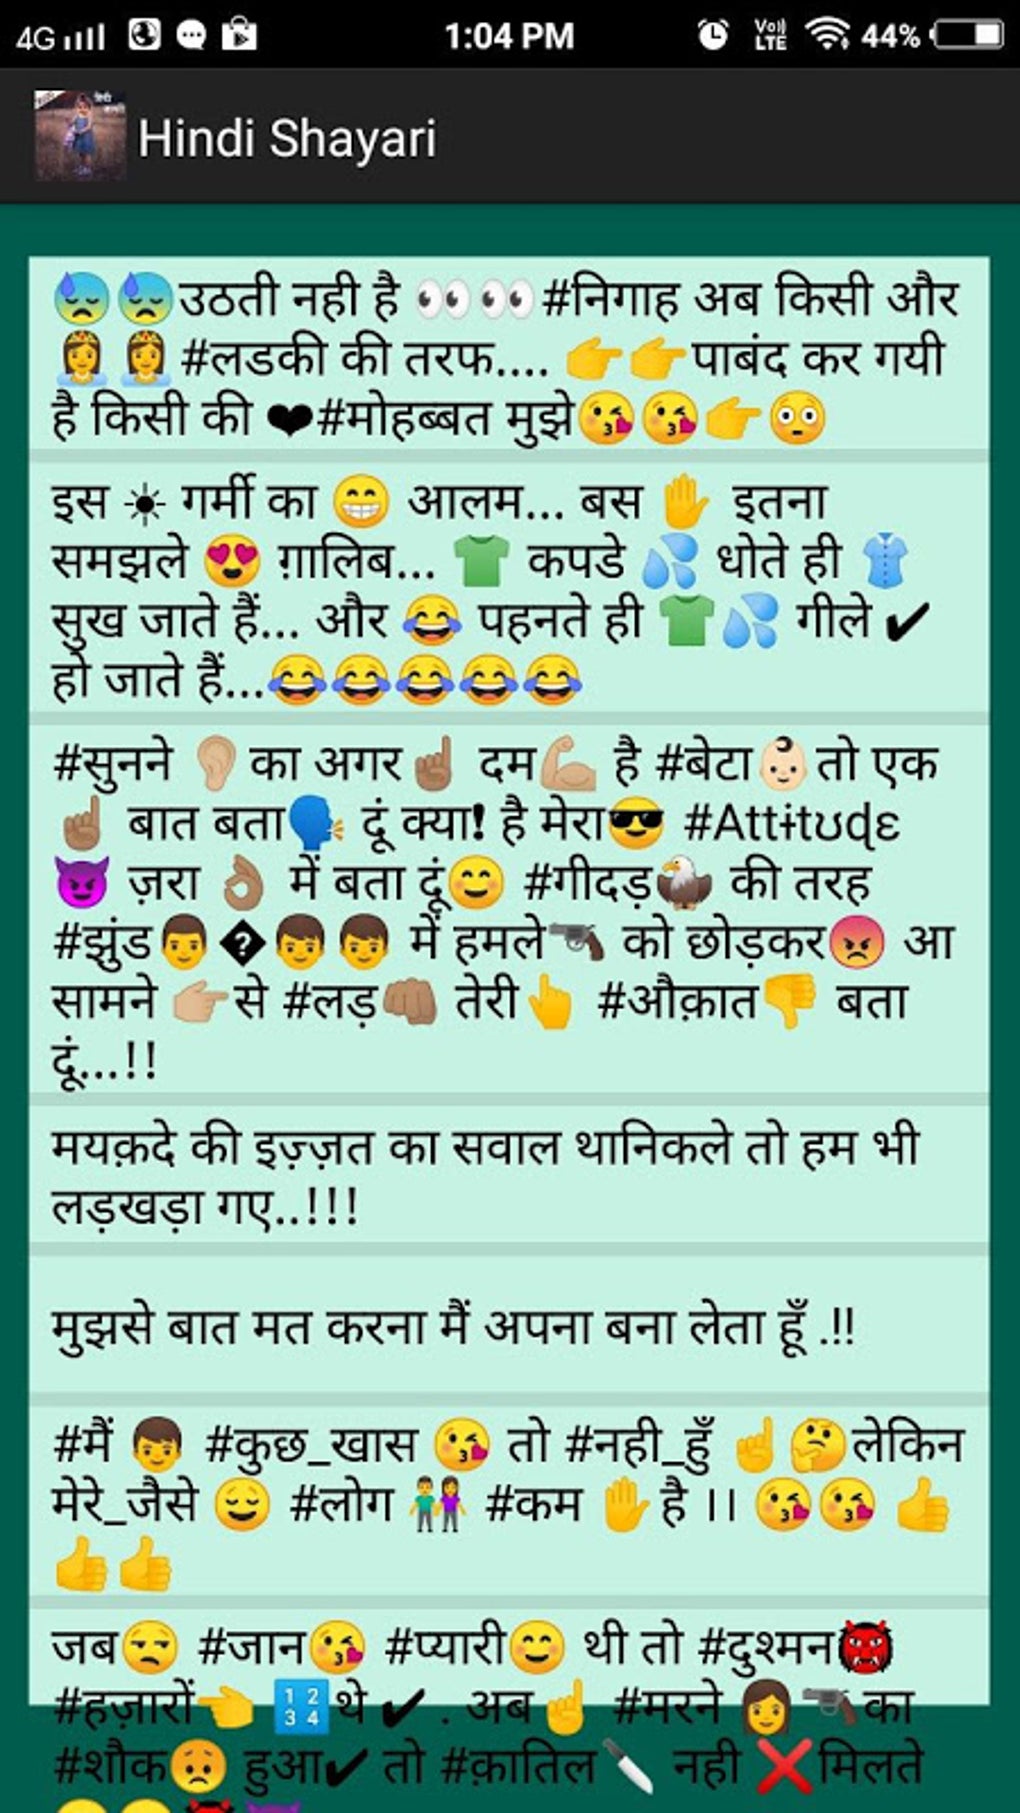 4G 1:04 PM Vo)) LTE 44%
Hindi Shayari
😓😓उठती नही है 👀👀#निगाह अब किसी और
👸👸#लडकी की तरफ.... 👉👉पाबंद कर गयी
है किसी की ❤#मोहब्बत मुझे😘😘👉😳
इस ☀ गर्मी का 😁 आलम... बस ✋ इतना
समझले 😍 ग़ालिब... 👕 कपडे 💦 धोते ही 👚
सुख जाते हैं... और 😂 पहनते ही 👕💦 गीले ✔
हो जाते हैं...😂😂😂😂😂
#सुनने 👂🏼का अगर☝🏽 दम💪🏼 है #बेटा👶🏻तो एक
☝🏽 बात बता🗣 दूं क्या❗ है मेरा😎 #Attɨtʊɖɛ
😈 ज़रा 👌🏽 में बता दूं😊 #गीदड़🦅 की तरह
#झुंड👨�👦👦 में हमले🔫 को छोड़कर😡 आ
सामने 👉🏼से #लड़👊🏽 तेरी👆 #औक़ात👎 बता
दूं...!!
मयक़दे की इज़्ज़त का सवाल थानिकले तो हम भी
लड़खड़ा गए..!!!
मुझसे बात मत करना मैं अपना बना लेता हूँ .!!
#मैं 👦 #कुछ_खास 😘 तो #नही_हुँ ☝🤔लेकिन
मेरे_जैसे 😌 #लोग 👫 #कम ✋है ।। 😘😘 👍
👍👍
जब😒 #जान😘 #प्यारी😊 थी तो #दुश्मन👹
#हज़ारों👈 🔢थे ✔ . अब☝ #मरने 👩🔫का
#शौक😞 हुआ✔ तो #क़ातिल🔪 नही ❌मिलते